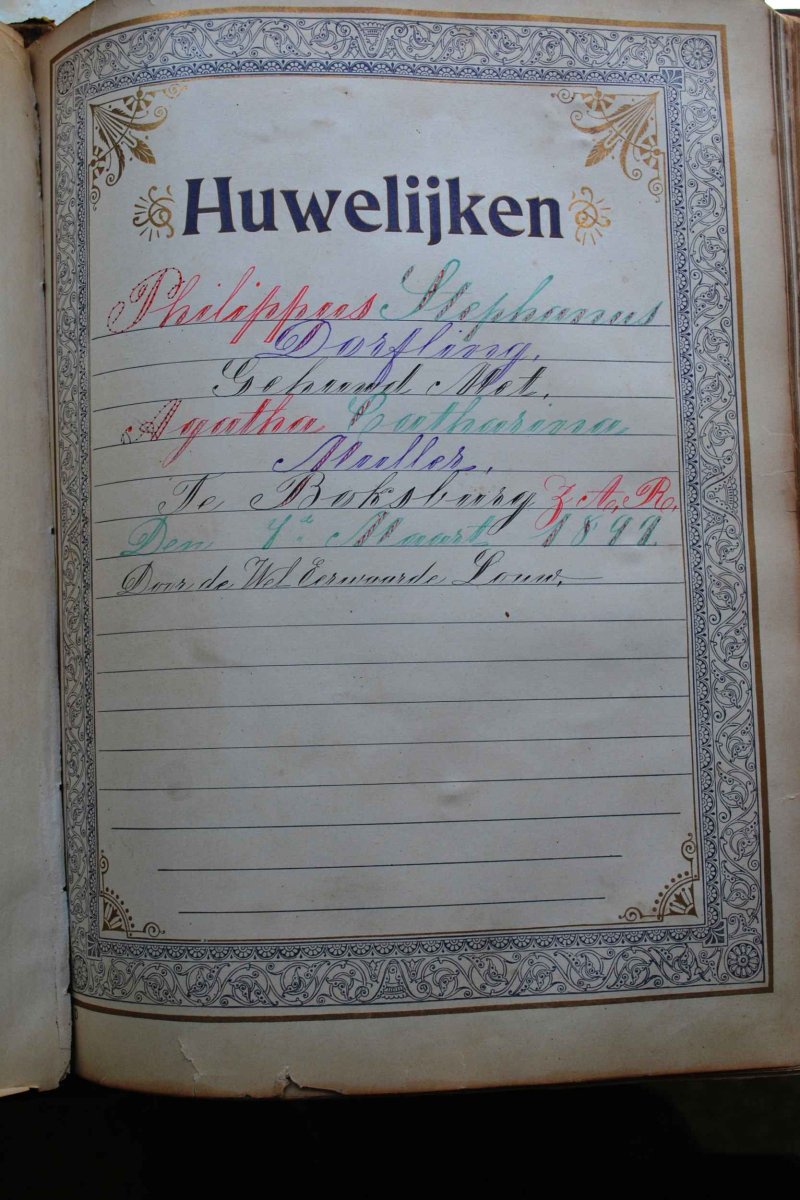 Huwelijken
Philippus Stephanus
Dorfling.
Gehuwd Met.
Agatha Catharina
Muller.
Te Boksburg Z.A.R.
Den 7de Maart 1899.
Door de Wel Eerwaarde Louw.